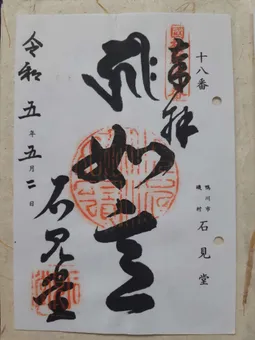 十八番
鴨川市
磯村
石見堂
奉拝
如意
令和五年五月二日
石見堂